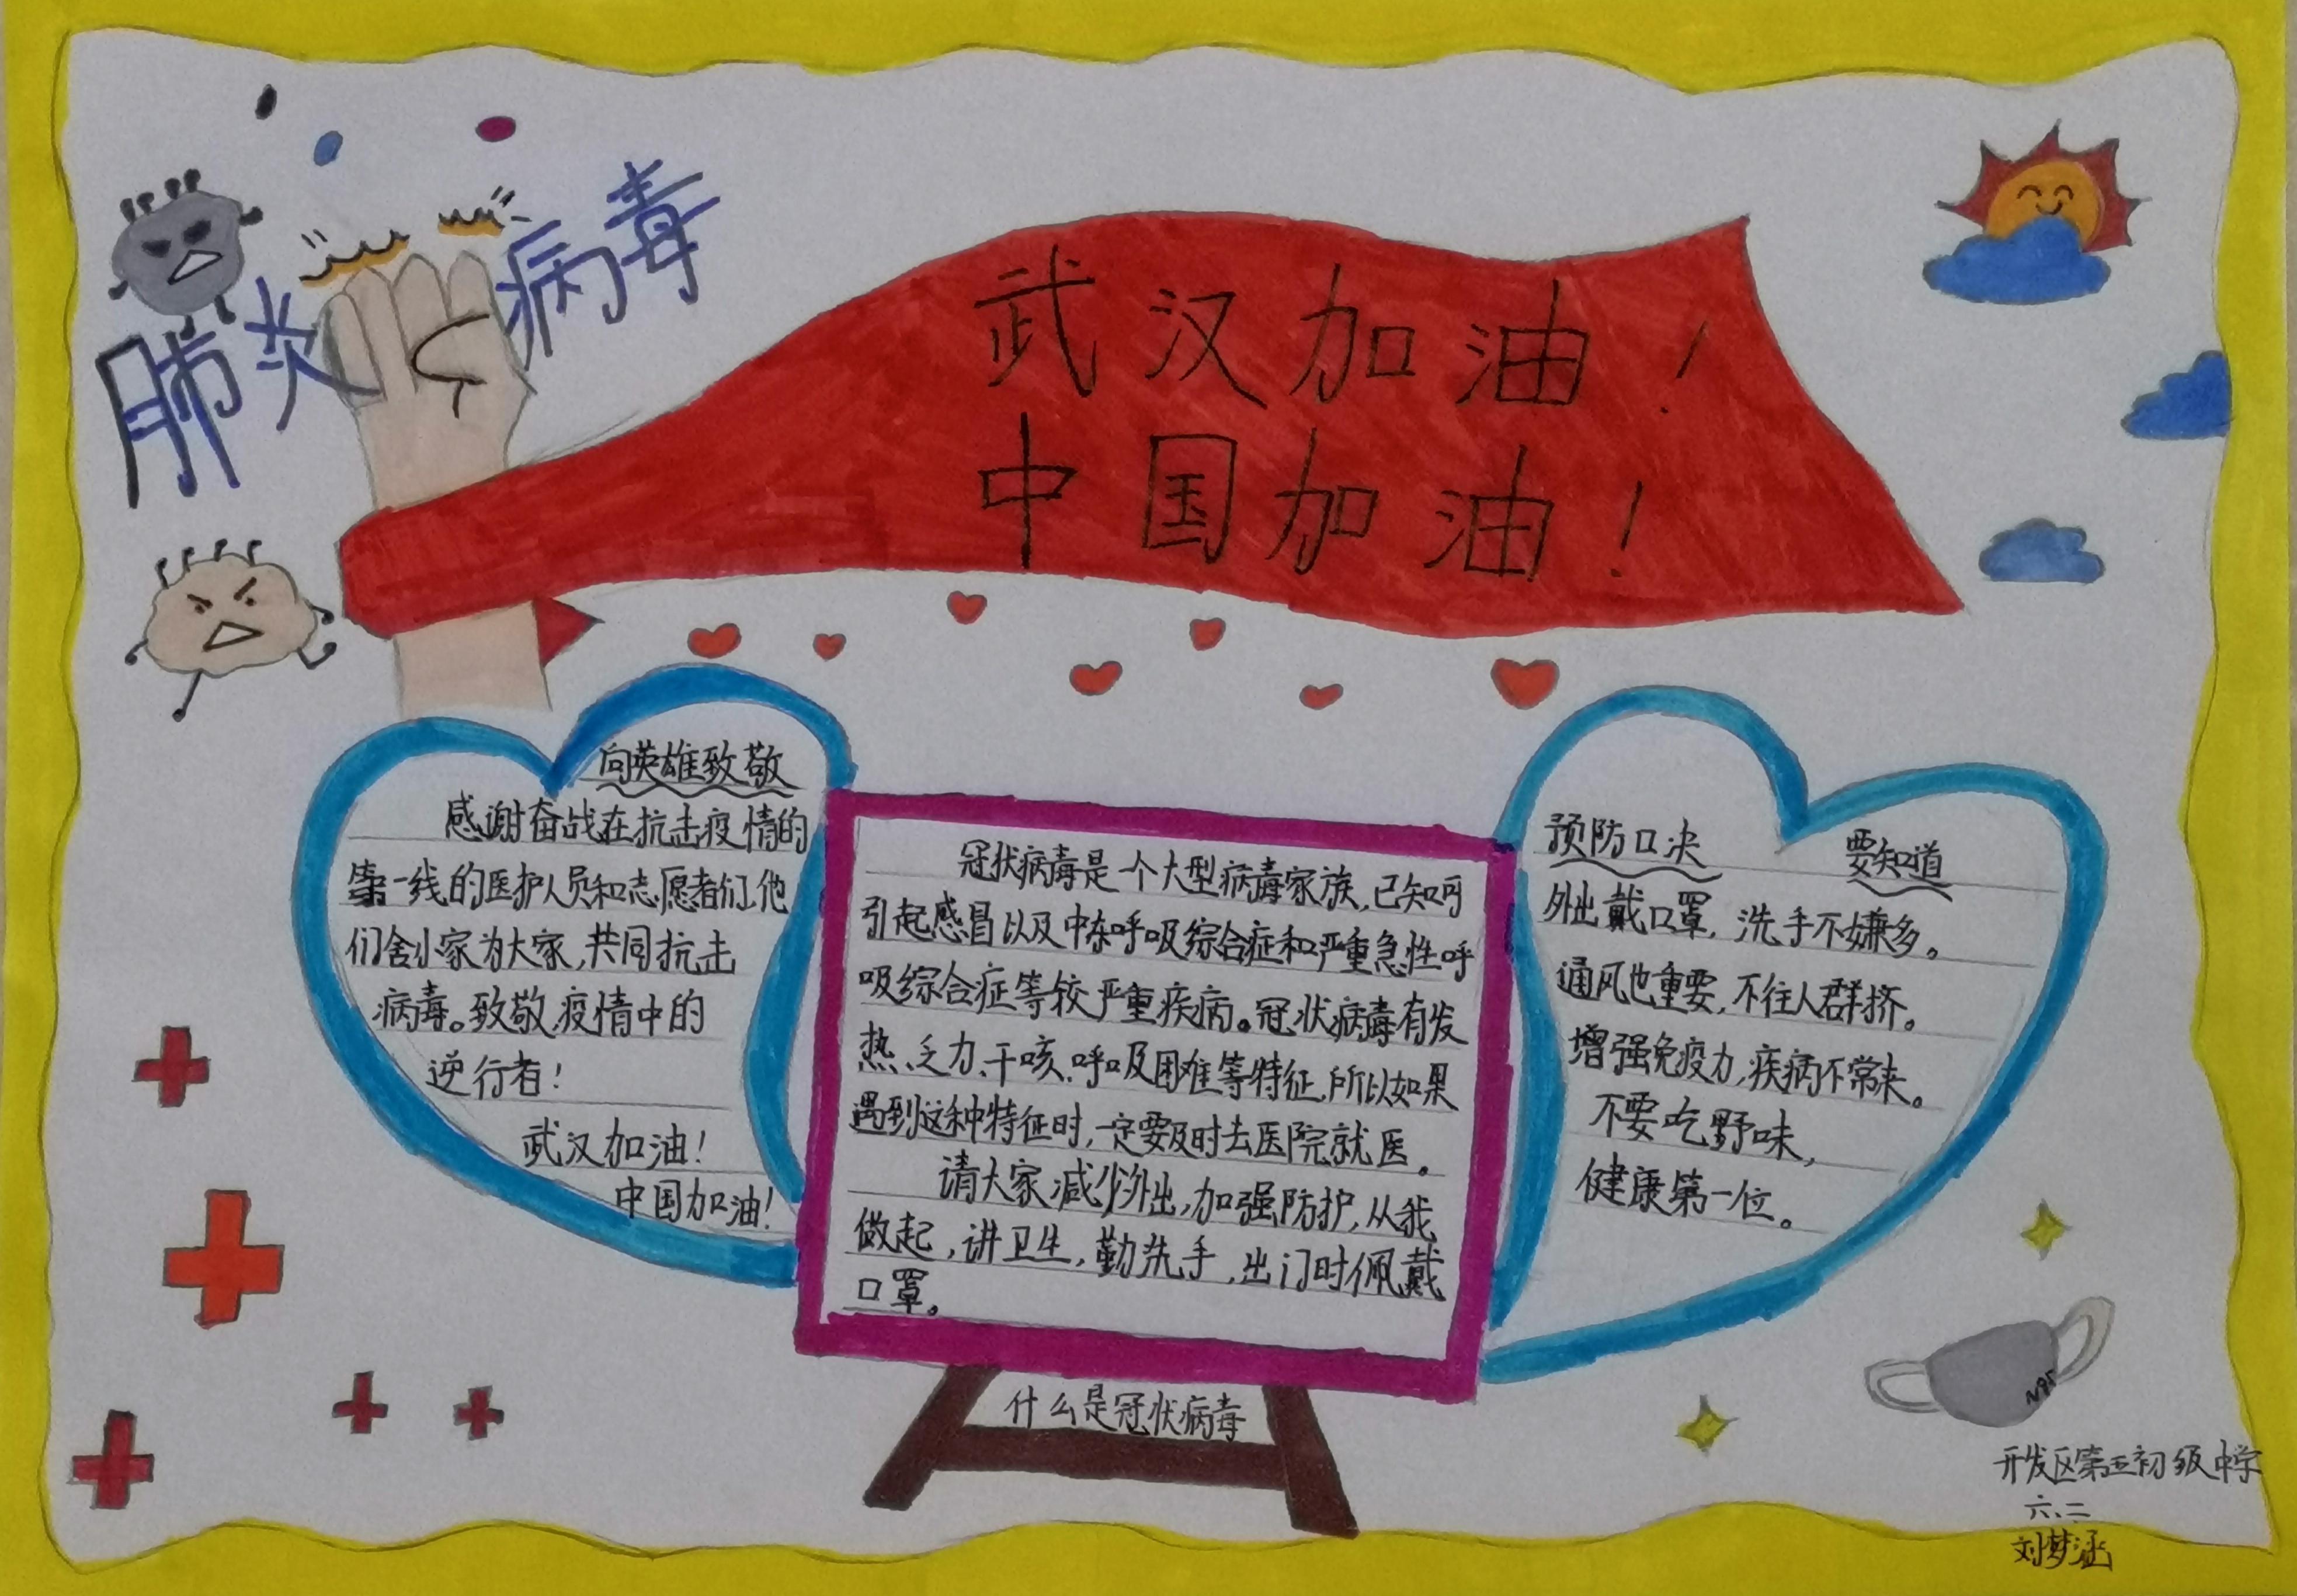 肺炎病毒
武汉加油!
中国加油!
向英雄致敬
感谢奋战在抗击疫情的
第一线的医护人员和志愿者们,他
们舍小家为大家,共同抗击
病毒。致敬疫情中的
逆行者!
武汉加油!
中国加油!
冠状病毒是一个大型病毒家族,已知可
引起感冒以及中东呼吸综合症和严重急性呼
吸综合症等较严重疾病。冠状病毒有发
热、乏力、干咳、呼吸困难等特征,所以如果
遇到这种特征时,一定要及时去医院就医。
请大家减少外出,加强防护,从我
做起,讲卫生,勤洗手,出门时佩戴
口罩。
什么是冠状病毒
预防口决 要知道
外出戴口罩,洗手不嫌多。
通风也重要,不往人群挤。
增强免疫力,疾病不常来。
不要吃野味,
健康第一位。
N95
开发区第五初级中学
六、二
刘梦涵